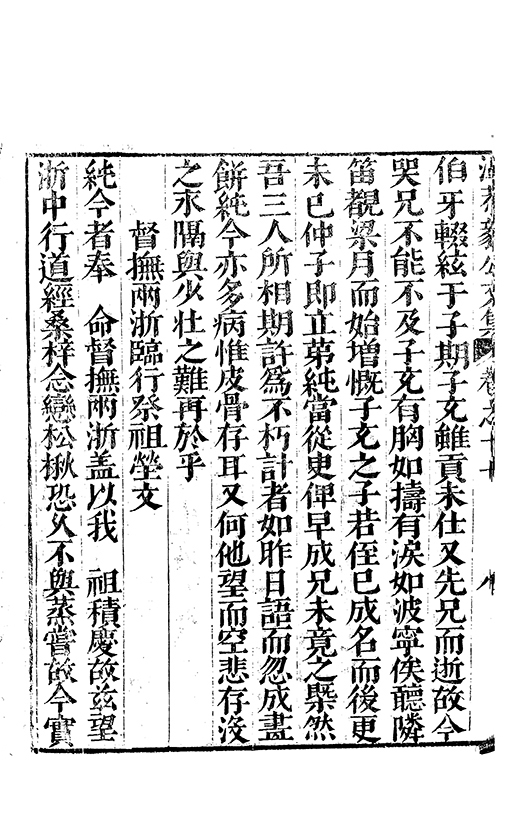 伯牙輟絃于子期子充雖貢未仕又先兄而逝故今
哭兄不能不及子充有胸如擣有淚如波寧俟聽隣
笛覩梁月而始增慨子充之子若侄巳成名而後更
未巳仲子即立苐純當從吏俾早成兄未竟之槩然
吾三人所相期許為不朽計者如昨日語而忽成畫
餅純今亦多病惟皮骨存耳又何他望而空悲存没
之永隔與少壯之難再於乎
督撫兩浙臨行祭祖塋文
純今者奉 命督撫兩浙盖以我 祖積慶故茲望
浙中行道經桑梓念戀松楸恐久不與蒸嘗故今實